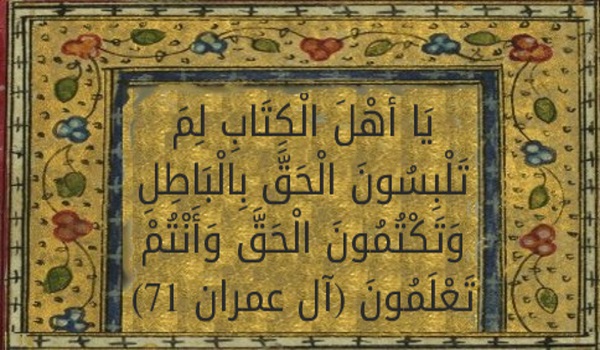 يَا أهْلَ الْكتَابِ لِمَ
تَلْبِسُونَ الْحَقَّ بِالْبَاطِلِ
وَتَكْتُمُونَ الْحَقَّ وَأَنْتُمْ
تَعْلَمُونَ (آل عمران 71)